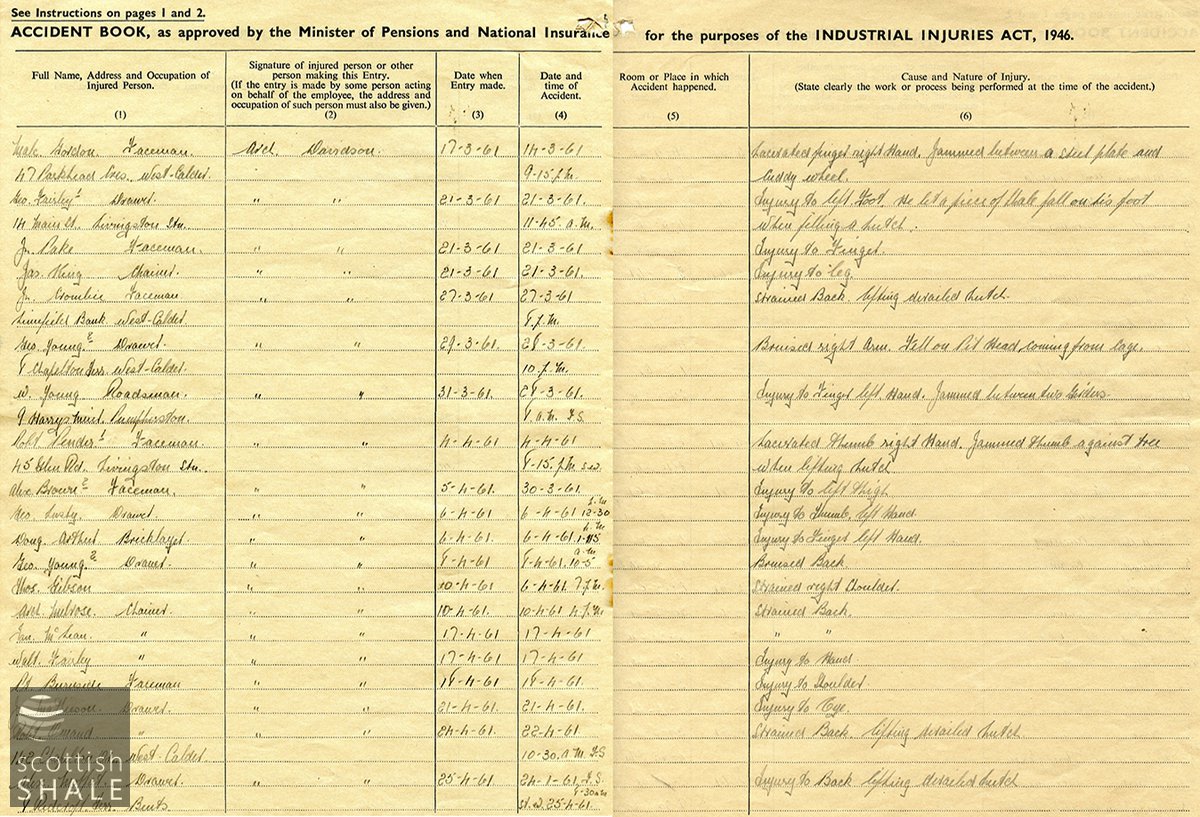 See Instructions on pages 1 and 2.
ACCIDENT BOOK, as approved by the Minister of Pensions and National Insurance for the purposes of the INDUSTRIAL INJURIES ACT, 1946.
Full Name, Address and Occupation of Injured Person. (1)
Signature of injured person or other person making this Entry. (If the entry is made by some person acting on behalf of the employee, the address and occupation of such person must also be given.) (2)
Date when Entry made. (3)
Date and time of Accident. (4)
Room or Place in which Accident happened. (5)
Cause and Nature of Injury. (State clearly the work or process being performed at the time of the accident.) (6)
Gordon. Faceman. Arcd. Davidson. 17-3-61 14-3-61 Lacerated finger right Hand. Jammed between a steel plate and
47 Parkhead Cres. West-Calder. 9-15 p.m. Giddy wheel.
Geo. Fairley Drawer. " " 21-3-61 21-3-61 Injury to left Foot. He let a piece of Shale fall on his foot
14 Main St. Livingston Stn. 11-45 a.m. when filling a hutch.
Jn. Pake Faceman. " " 21-3-61 21-3-61 Injury to Finger.
Jas. King Chainer. " " 21-3-61 21-3-61. Injury to leg.
Jn. Crombie Faceman " " 27-3-61 27-3-61 Strained Back. lifting derailed hutch.
Limefield Bank. West-Calder. 8 p.m.
Geo. Young 2 Drawer. " " 29-3-61. 28-3-61. Bruised right Arm. Fell on Pit Head, coming from Cage.
8 Chapelton Terr. West-Calder. 10 p.m.
W. Young Roadsman. " " 31-3-61. 28-3-61. Injury to Finger left Hand. Jammed between two Girders.
9 Harrysmuir. Pumpherston. 8 a.m. F.S.
Robt Render 1 Faceman. " " 4-4-61 4-4-61 Lacerated Thumb right Hand. Jammed Thumb against tree
45 Glen Rd. Livingston Stn. 8-15 p.m. S.W. when lifting hutch.
Alex Brown 2 Faceman. " " 5-4-61. 30-3-61. Injury to left Thigh.
Geo. Drawer. " " 6-4-61. 6-4-61 12-30 p.m. Injury to Thumb. left Hand.
Doug. Arthur Bricklayer. " " 6-4-61. 6-4-61. p.m. Injury to Finger left Hand.
Geo. Young 2 Drawer. " " 8-4-61 8-4-61. 10-5 a.m. Bruised Back
Thos. Gibson " " 10-4-61 6-4-61. 7 p.m. Strained right Shoulder.
Arch. Chainer. " " 10-4-61. 10-4-61 4 p.m. Strained Back.
Ian. McLean. " " " 17-4-61 17-4-61 " "
Walt. Fairley " " " 17-4-61 17-4-61 Injury to Hand.
Burnside Faceman " " 18-4-61 18-4-61. Injury to Shoulder.
Drawer. " " 21-4-61. 21-4-61. Injury to Eye.
" " " 24-4-61. 22-4-61 Strained Back lifting derailed hutch.
West Calder 10-30. a.m. F.S
Drawer. " " 25-4-61. 24-1-61. F.S. Injury to Back lifting derailed hutch
Terr. Bents. 25-4-61.
scottish
SHALE